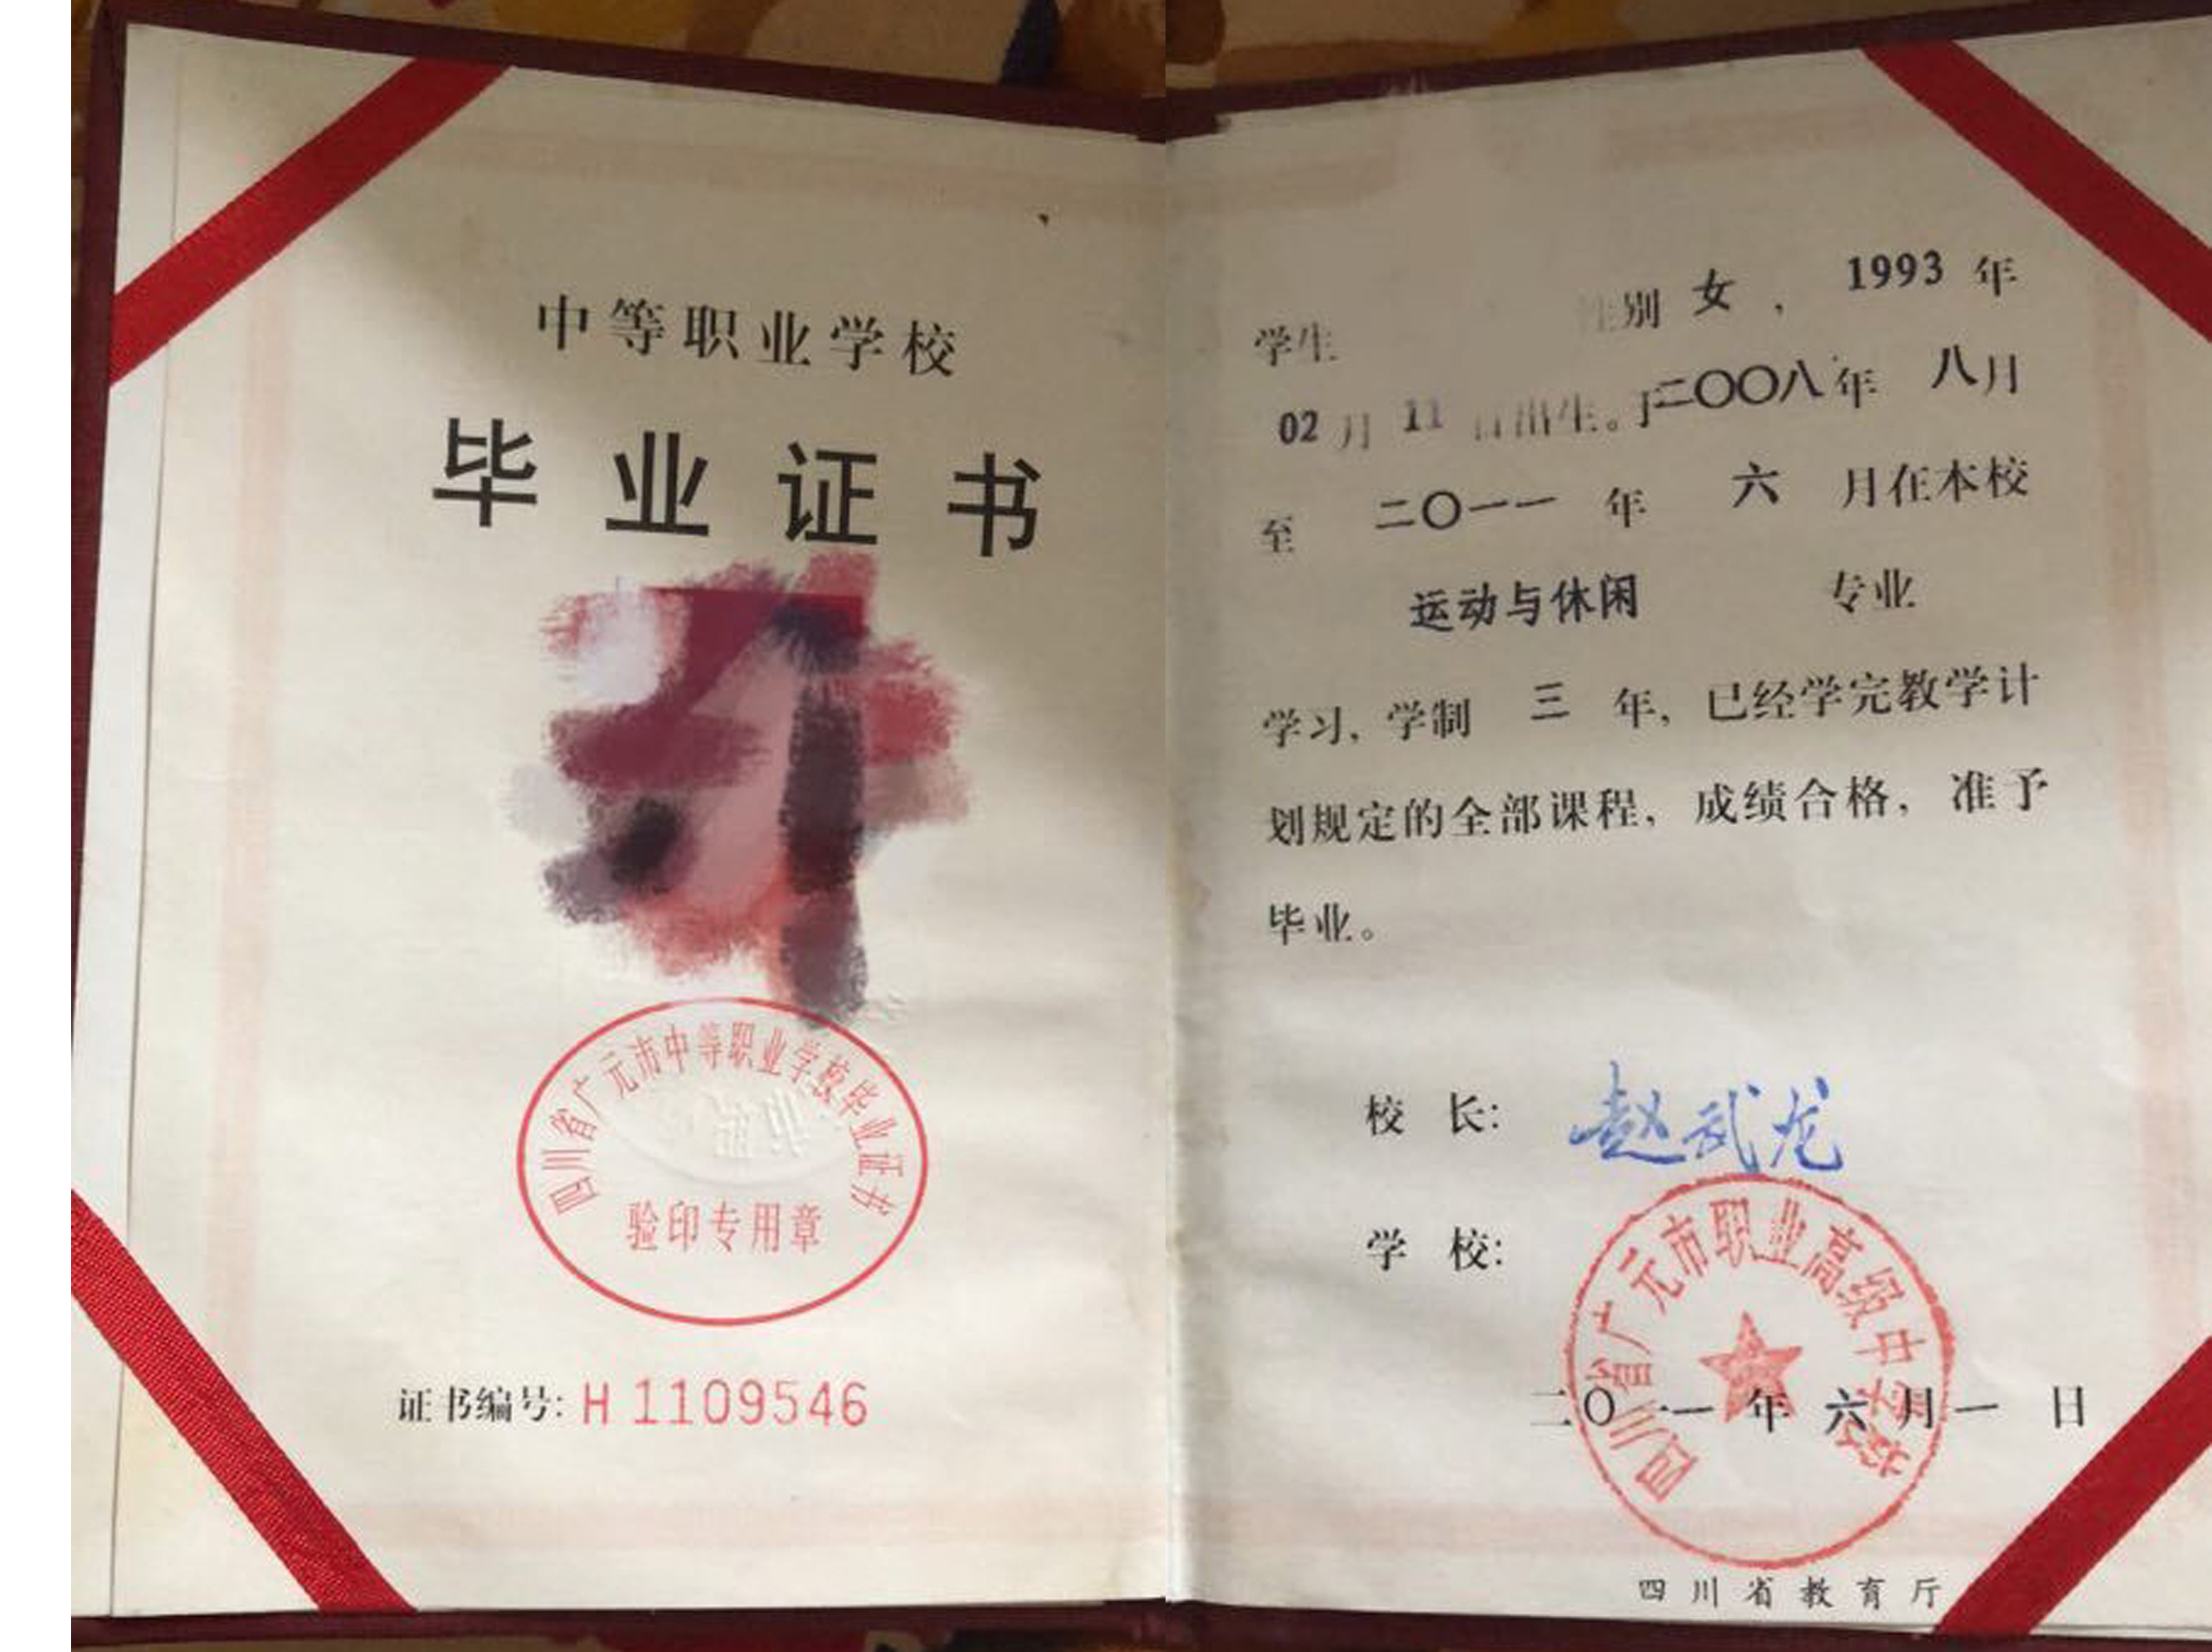 中等职业学校
毕业证书
四川省广元市中等职业学校毕业证书
验印专用章
证书编号: H 1109546
学生 性别 女 , 1993 年
02 月 11 日出生。于二〇〇八年 八月
至 二〇一一 年 六 月在本校
运动与休闲 专业
学习, 学制 三 年, 已经学完教学计
划规定的全部课程, 成绩合格, 准予
毕业。
校 长: 赵武龙
学 校:
四川省广元市职业高级中学校
二〇一一年六月一 日
四川省教育厅